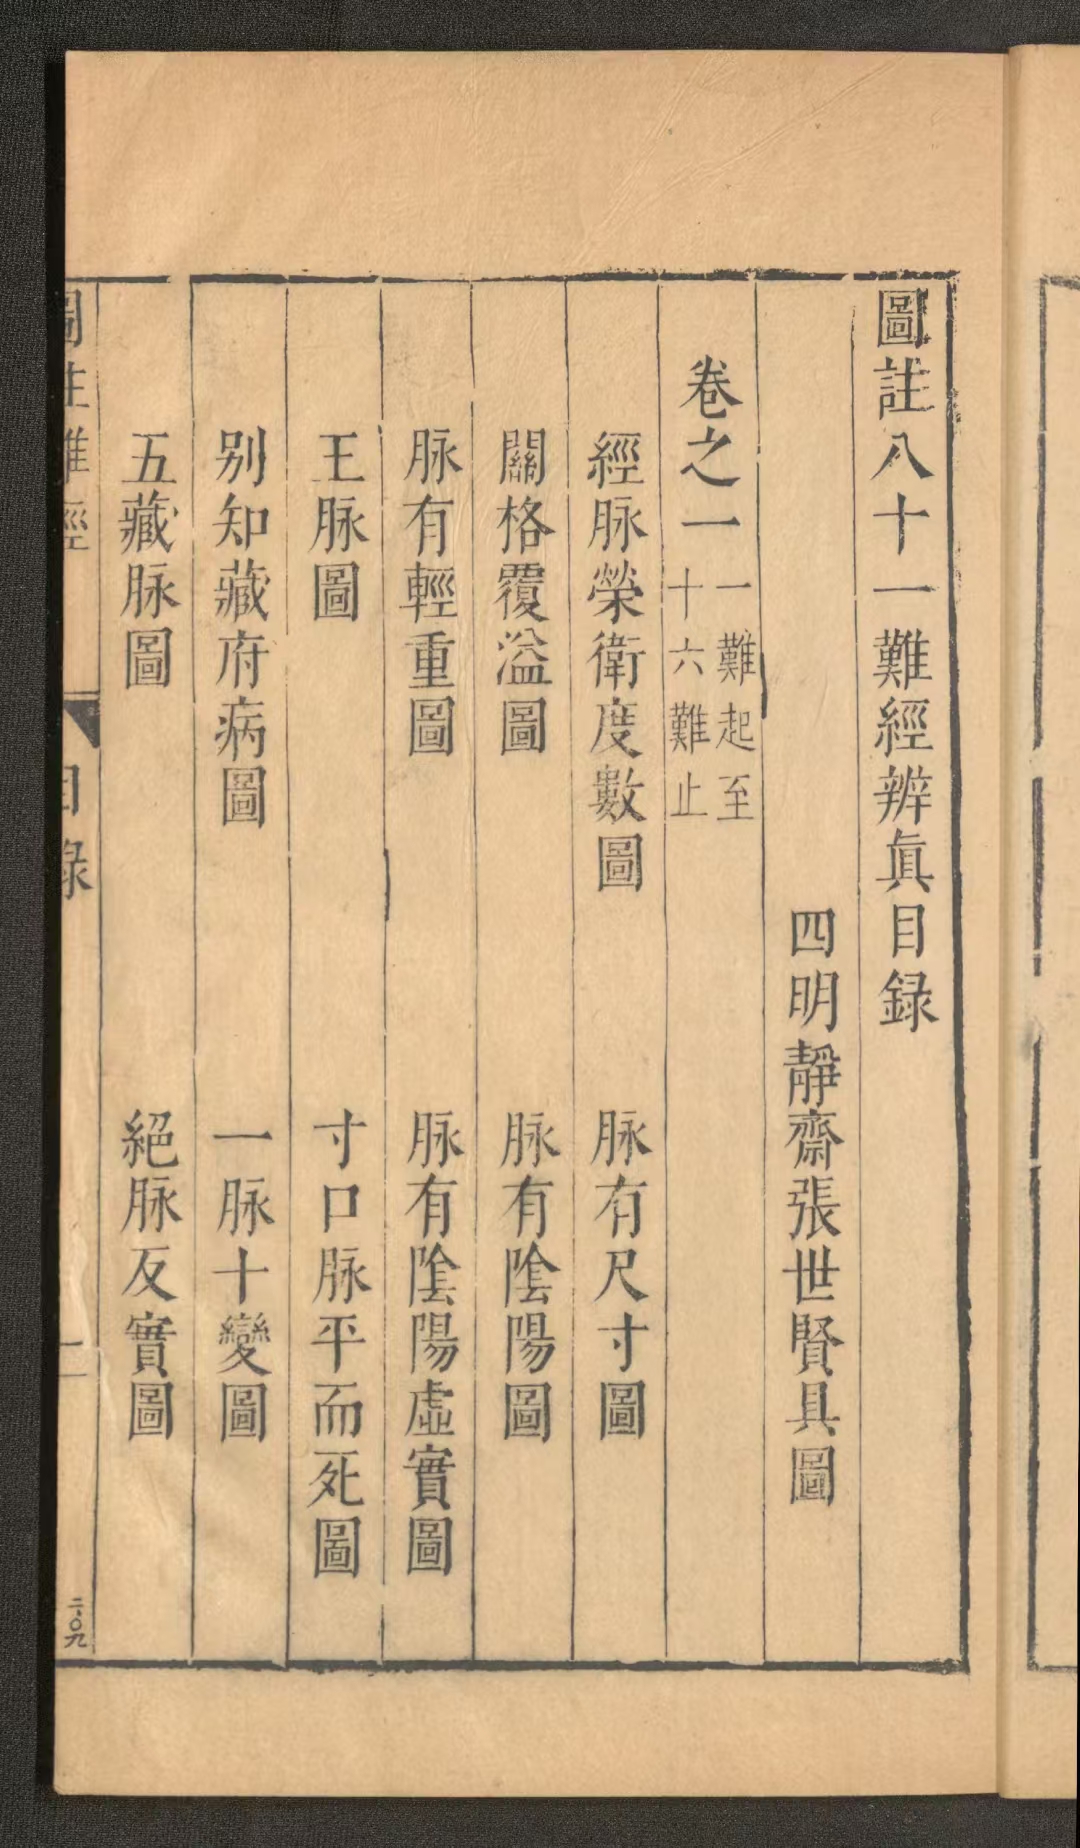 圖註八十一難經辨眞目録
四明靜齋張世賢具圖
卷之一 一難起至
十六難止
經脉榮衛度數圖 脉有尺寸圖
關格覆溢圖 脉有陰陽圖
脉有輕重圖 脉有陰陽虛實圖
王脉圖 寸口脉平而死圖
别知藏府病圖 一脉十變圖
五藏脉圖 絕脉反實圖
圖註難經 目錄 一 二·〇九